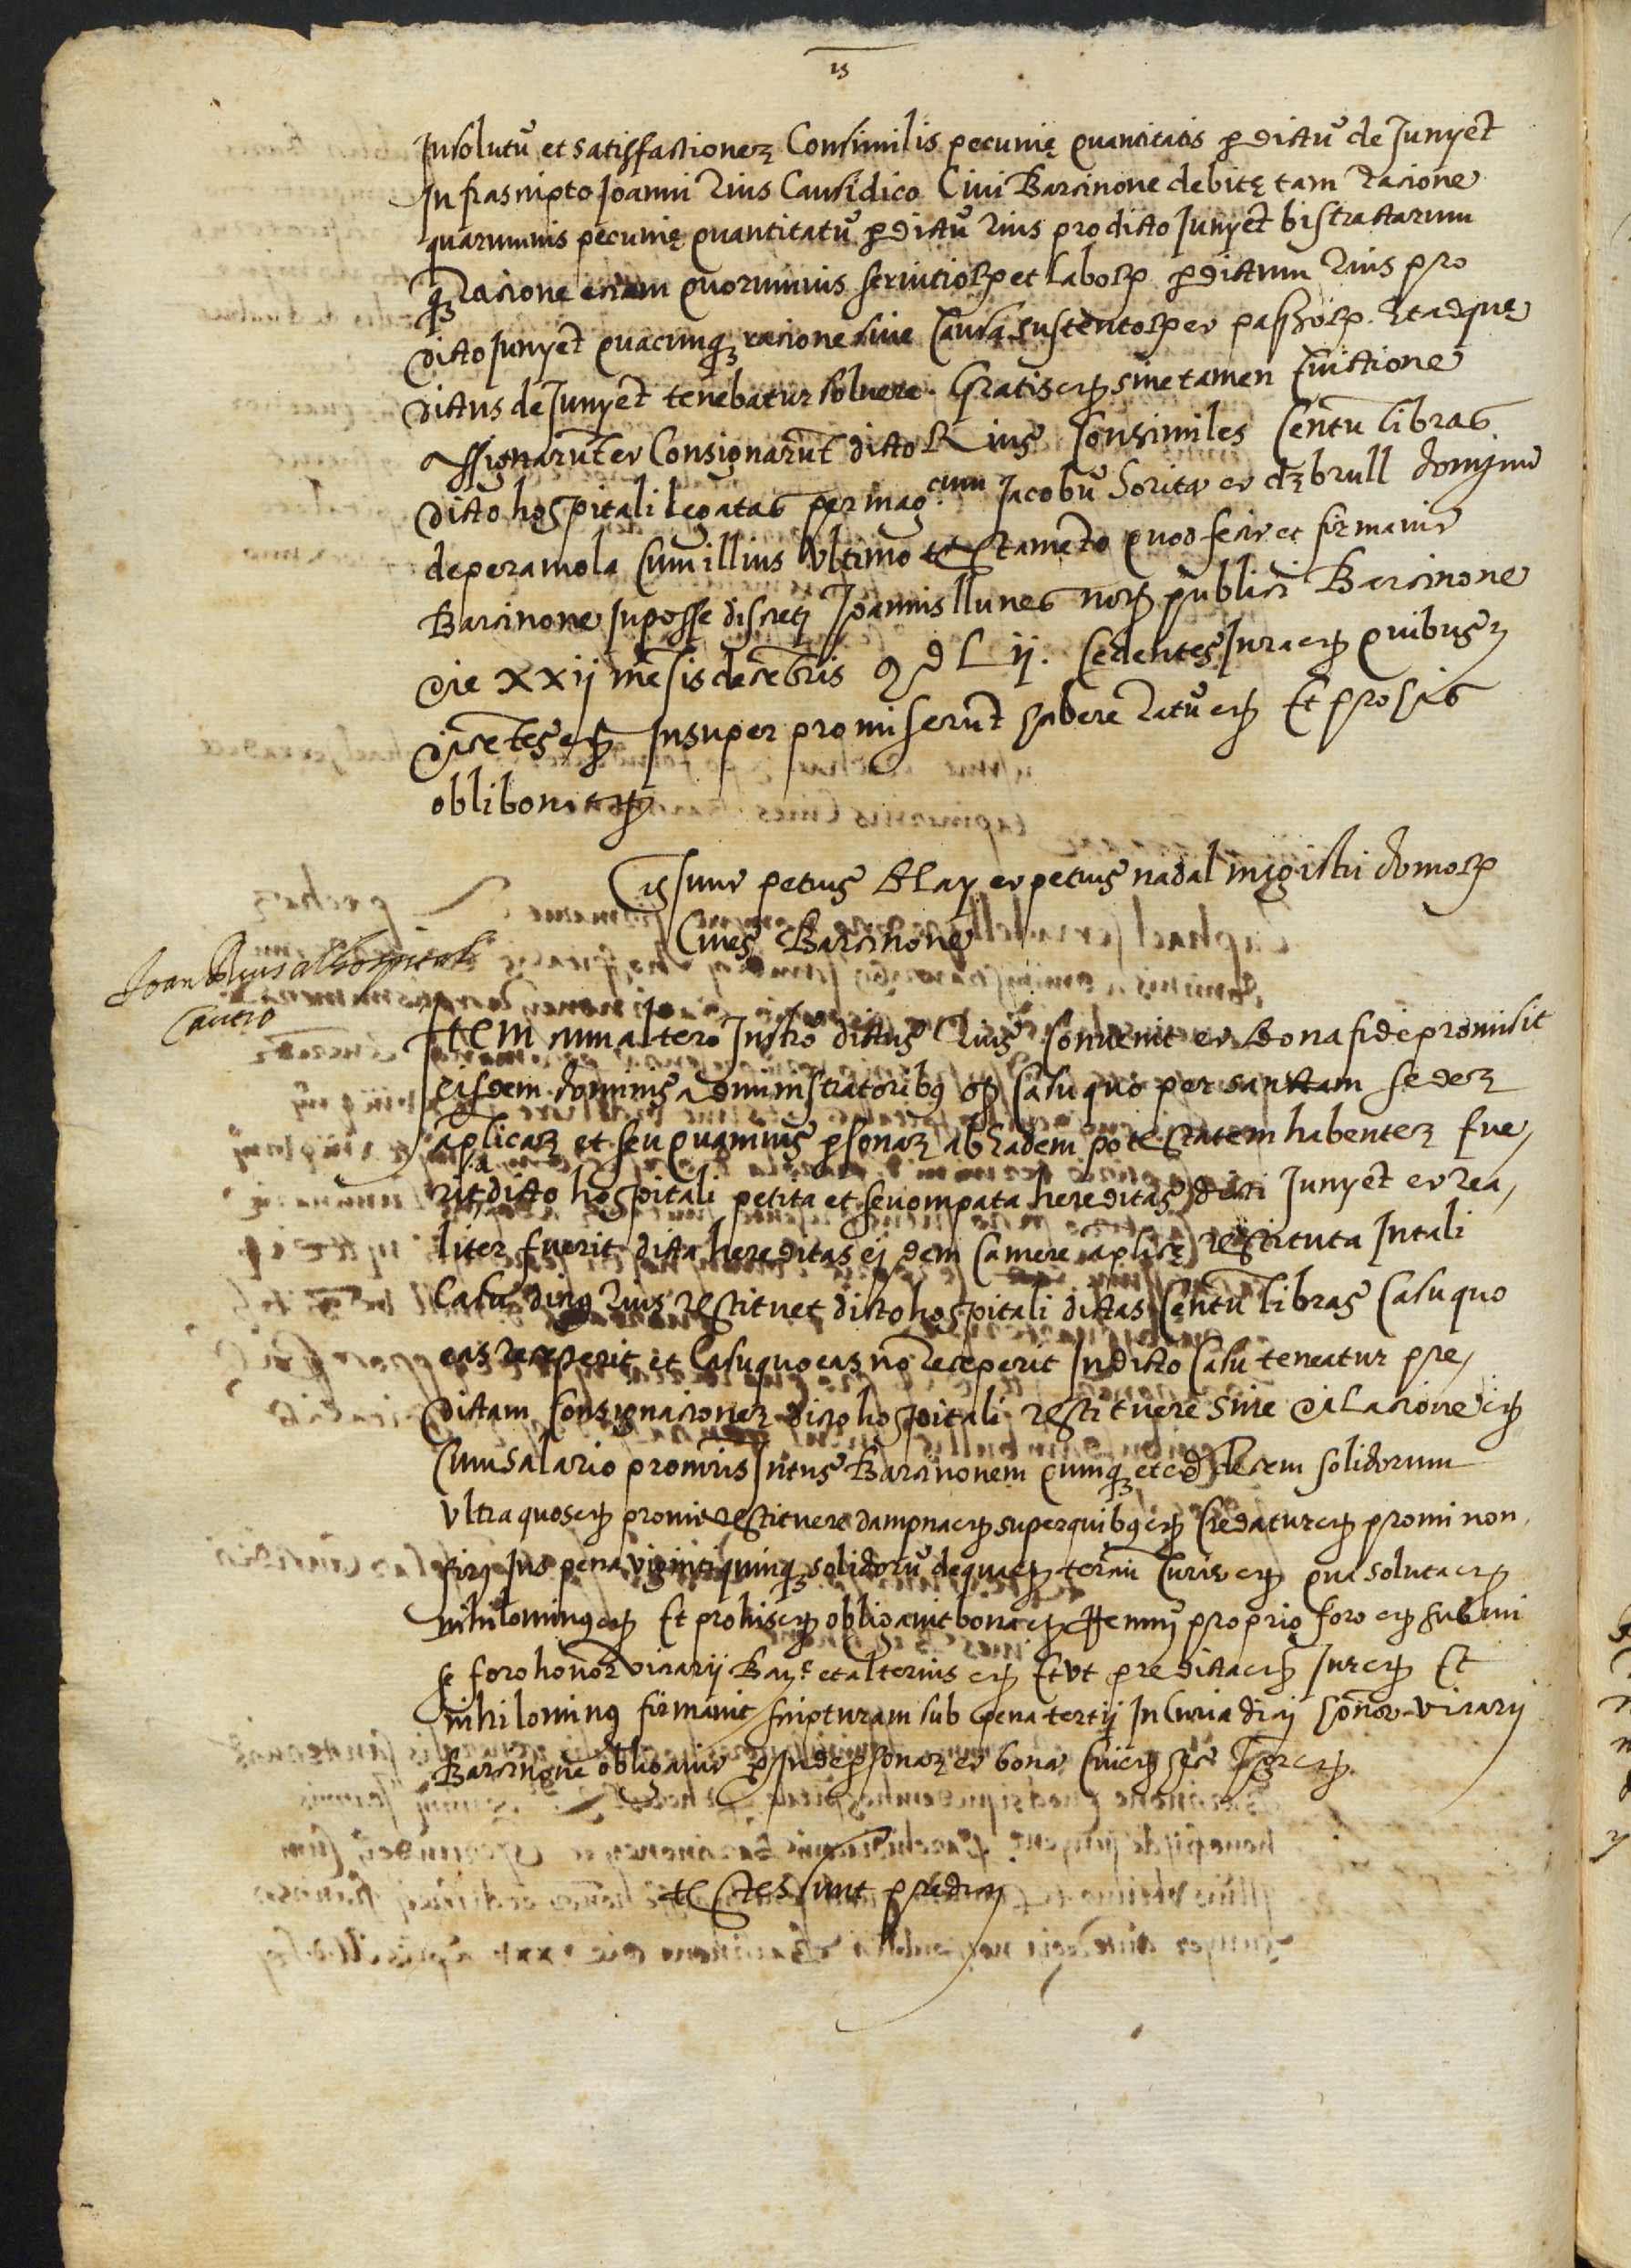 15
Insolutũ et satisfactionez Consimilis pecunię quantitatis p dictũ de Junyẽt
Infrascripto Joanni Rius Causidico Ciui Barcinone debitę tam Racione
quarumuis pecunię quantitatũ p dictũ Rius pro dicto Junyẽt bistractarum
qz Racione eciam quorumuis seruitioꝝ et laboꝝ p dictum Rius pro
dicto Junyẽt quacunqz racione siue Causa sustentoꝝ et Et adque
dictus de Junyẽt tenebatur soluere. Gratis etc sine tamen Euictione
Assignarũt et Consignarũt dicto Rius Consimiles Centũ libras
dicto hospitali legatas per mag.cum Jacobũ Sorita et dez brull dominũ
de peramola Cum illius Vltimo testamẽto quod fecit et firmauit
Barcinone In posse discreti Joannis llunes norii publici Barcinone
die xxij mẽsis decẽbris M D L ij. Cedentes Iura etc quibus
dicẽtes etc Insuper promiserũt habere Ratũ etc Et pro his
obli bona etc
Ts sunt petrus Alay et petrus nadal magistri domoꝝ
Ciues Barcinone
Joan Rius al hospital
Cautio
Item cum altero Instrõ dictus Rius Conuenit et bona fide promisit
eisdem dominis administratoribꝰ etc Casu quo per sanctam sedez
aplicaz et seu quamuis psonaz ab eadem potestatem habentez fue,
rit a dicto hospitali petita et seu hereditas dicti Junyẽt et rea,
liter fuerit dicta hereditas ei dem Camere aplicę restituta In tali
Casu dictꝰ Rius restituet dicto hospitali dictas Centũ libras Casu quo
eas receperit et Casu quo eas nõ receperit In dicto Casu teneatur pre,
dictam Consignacionez dicto hospitali restituere sine dilacione etc
Cum salario procuris Intus Barcinonem quinqz et decem solidorum
Vltra quos etc promit restituere dampna etc super quibꝰ etc Credatur etc promi non
fir Ius pena viginti quinqz solidorũ de qua etc terciũ Curie etc qua soluta etc
nihilominꝰ etc Et pro his etc obligauit bona etc proprio foro etc submi
se foro honor vicarij Bar.e et alterius etc Et vt predicta etc Iur etc Et
nihilominꝰ firmauit scripturam sub pena tertij In Curia dicti honor. vicarij
Barcinone obligauit p Inde psonaz et bona etc
testes sunt predicti